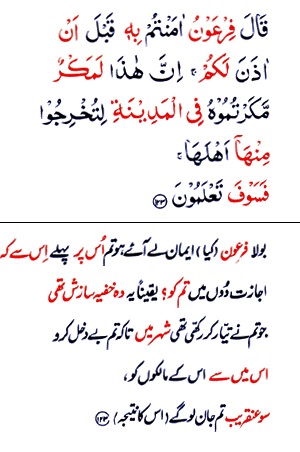 قَالَ فِرْعَوْنُ اٰمَنْتُمْ بِهٖ قَبْلَ اَنْ
اٰذَنَ لَكُمْ ۚ اِنَّ هٰذَا لَمَكْرٌ
مَّكَرْتُمُوْهُ فِی الْمَدِیْنَةِ لِتُخْرِجُوْا
مِنْهَاۤ اَهْلَهَا ۚ
فَسَوْفَ تَعْلَمُوْنَ ﴿۱۲۳﴾
بولا فرعون (کیا) ایمان لے آئے ہو تم اُس پر پہلے اِس سے کہ
اجازت دُوں میں تم کو؟ یقیناً یہ وہ خفیہ سازش تھی
جو تم نے تیّار کر رکھّی تھی شہر میں تاکہ تم بے دخل کرو
اس میں سے اس کے مالکوں کو،
سو عنقریب تم جان لو گے (اس کا نتیجہ) ﴿۱۲۳﴾